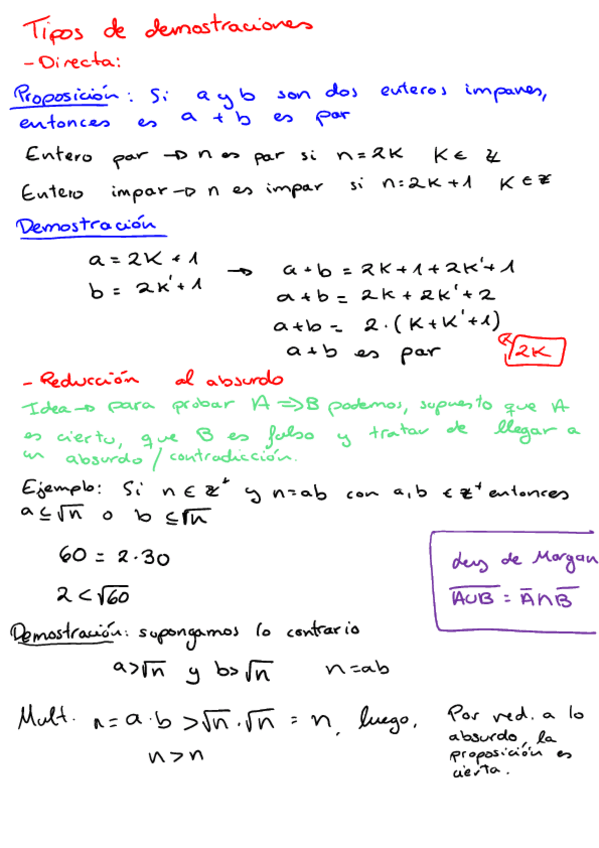 Tipos de demostraciones
- Directa:
Proposición: Si a y b son dos enteros impares,
entonces es a + b es par
Entero par → n es par si n=2K K∈ℤ
Entero impar → n es impar si n=2K+1 K∈ℤ
Demostración
a = 2K + 1
b = 2K' + 1
→ a+b = 2K+1+2K'+1
a+b = 2K+2K'+2
a+b = 2·(K+K'+1)
a+b es par
2K
- Reducción al absurdo
Idea → para probar A ⇒ B podemos, supuesto que A
es cierto, que B es falso y tratar de llegar a
un absurdo/contradicción.
Ejemplo: Si n∈ℤ⁺ y n=ab con a,b ∈ ℤ⁺ entonces
a ≤ √n o b ≤ √n
60 = 2·30
2 < √60
de Morgan
A̅∪̅B̅ = A̅∩B̅
Demostración: supongamos lo contrario
a>√n y b>√n n=ab
Mult. n=a·b > √n·√n = n, luego,
n>n
Por red. a lo
absurdo, la
proposición es
cierta.